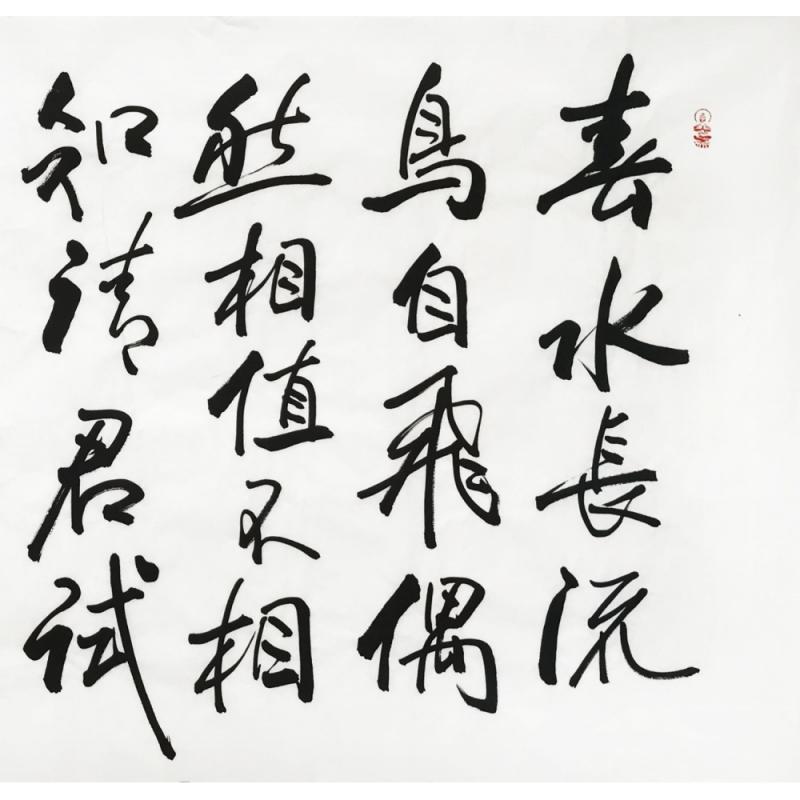 春水長流
鳥自飛偶
然相值不相
知请君试